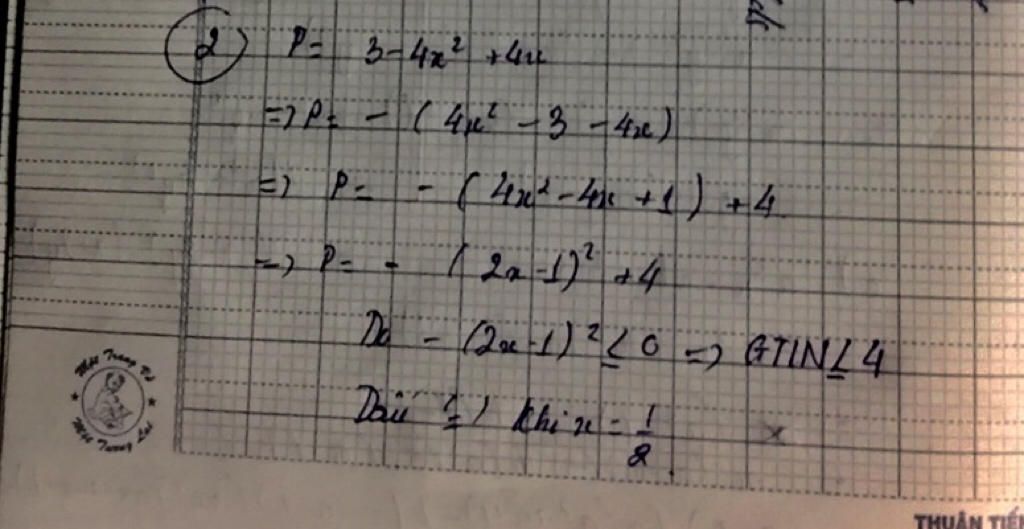 2 P = 3 - 4x² + 4x
=> P = - (4x² - 3 - 4x)
=> P = - (4x² - 4x + 1) + 4
=> P = - (2x - 1)² + 4
Do - (2x - 1)² ≤ 0 => GTLN ≤ 4
Dấu (=) khi x = 1/2
Một Trang Vở
Một Tương Lai
THUẬN TIẾ